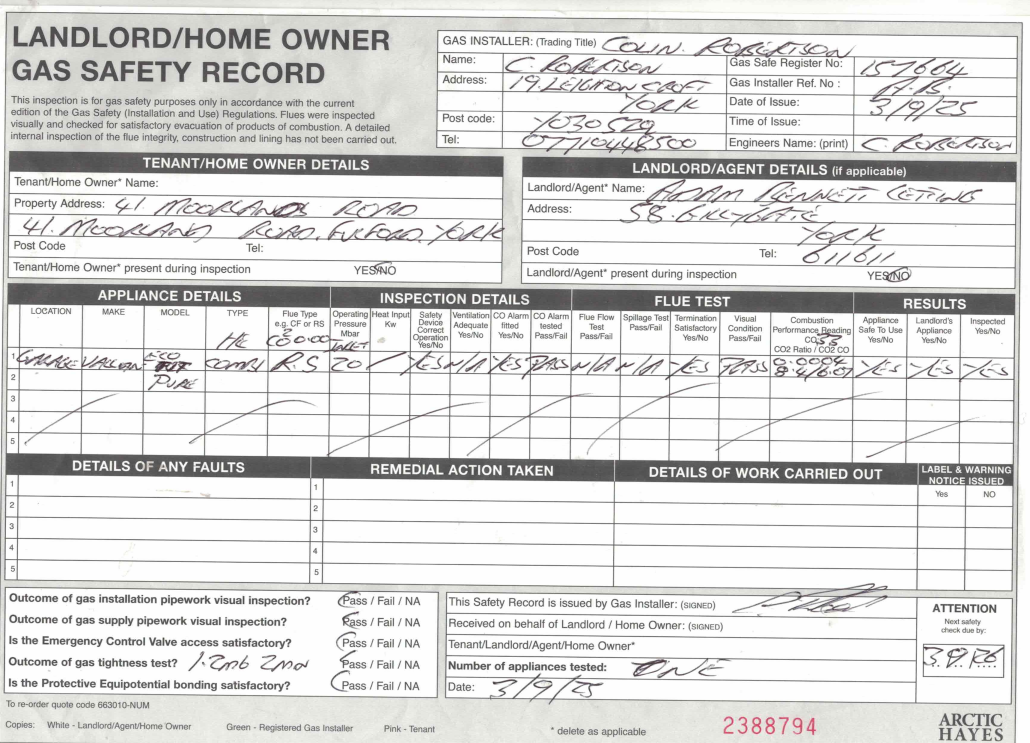 LANDLORD/HOME OWNER
GAS SAFETY RECORD
This inspection is for gas safety purposes only in accordance with the current
edition of the Gas Safety (Installation and Use) Regulations. Flues were inspected
visually and checked for satisfactory evacuation of products of combustion. A detailed
internal inspection of the flue integrity, construction and lining has not been carried out.
GAS INSTALLER: (Trading Title) COLIN. ROBERTSON
Name: C. ROBERTSON
Gas Safe Register No: 157664
Address: 19. LEIGHTON CROFT
Gas Installer Ref. No :
YORK
Date of Issue: 3/9/25
Post code: YO30 5
Time of Issue:
Tel: 07710448500
Engineers Name: (print) C. ROBERTSON
TENANT/HOME OWNER DETAILS
Tenant/Home Owner* Name:
Property Address: 41. MOORLANDS ROAD
41. MOORLAND ROAD. FULFORD. YORK
Post Code Tel:
Tenant/Home Owner* present during inspection YES/NO
LANDLORD/AGENT DETAILS (if applicable)
Landlord/Agent* Name: ADAM BENNETT. LETTING
Address: 58. GILLYGATE
YORK
Post Code Tel: 611611
Landlord/Agent* present during inspection YES/NO
APPLIANCE DETAILS INSPECTION DETAILS FLUE TEST RESULTS
LOCATION MAKE MODEL TYPE Flue Type e.g. CF or RS Operating Pressure Mbar Heat Input Kw Safety Device Correct Operation Yes/No Ventilation Adequate Yes/No CO Alarm fitted Yes/No CO Alarm tested Pass/Fail Flue Flow Test Pass/Fail Spillage Test Pass/Fail Termination Satisfactory Yes/No Visual Condition Pass/Fail Combustion Performance Reading CO CO2 Ratio / CO2 CO Appliance Safe To Use Yes/No Landlord's Appliance Yes/No Inspected Yes/No
HE INLET
1 GARAGE VAILLANT ECO COMBI R.S 20 / YES N/A YES PASS N/A N/A YES PASS 0.0004 YES YES YES
2 PURE
3
4
5
DETAILS OF ANY FAULTS REMEDIAL ACTION TAKEN DETAILS OF WORK CARRIED OUT LABEL & WARNING NOTICE ISSUED
Yes NO
1 1
2 2
3 3
4 4
5 5
Outcome of gas installation pipework visual inspection? Pass / Fail / NA
Outcome of gas supply pipework visual inspection? Pass / Fail / NA
Is the Emergency Control Valve access satisfactory? Pass / Fail / NA
Outcome of gas tightness test? 1.2mb 2min Pass / Fail / NA
Is the Protective Equipotential bonding satisfactory? Pass / Fail / NA
This Safety Record is issued by Gas Installer: (SIGNED)
Received on behalf of Landlord / Home Owner: (SIGNED)
Tenant/Landlord/Agent/Home Owner*
Number of appliances tested: ONE
Date: 3/9/25
ATTENTION
Next safety
check due by:
3.9.26
To re-order quote code 663010-NUM
Copies: White - Landlord/Agent/Home Owner Green - Registered Gas Installer Pink - Tenant * delete as applicable 2388794
ARCTIC
HAYES